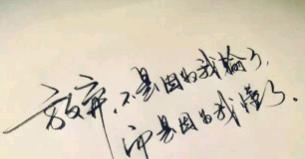 放弃,不是因为我输了,
而是因为我懂了.